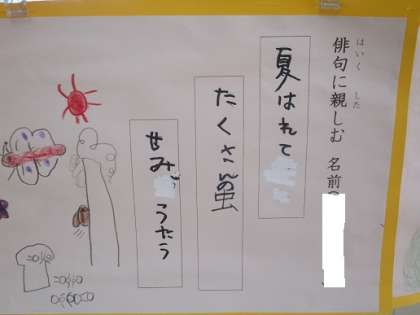 俳句に親しむ 名前
はいく した
夏はれて
たくさん虫
せみ うたう